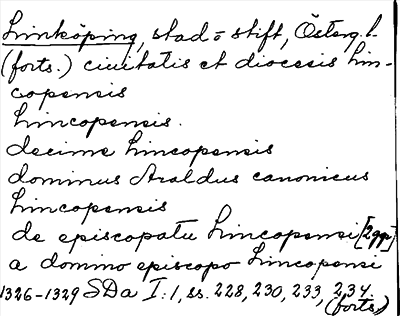 Linköping, stad o stift, Österg. l.
(forts.) ciuitatis et diocesis Lin-
copensis
Lincopensis.
decime Lincopensis
dominus Araldus canonicus
Lincopensis
de episcopatu Lincopensi [2 ggr]
a domino episcopo Lincopensi
1326-1329 SDa I:1, ss. 228, 230, 233, 234.
(forts)